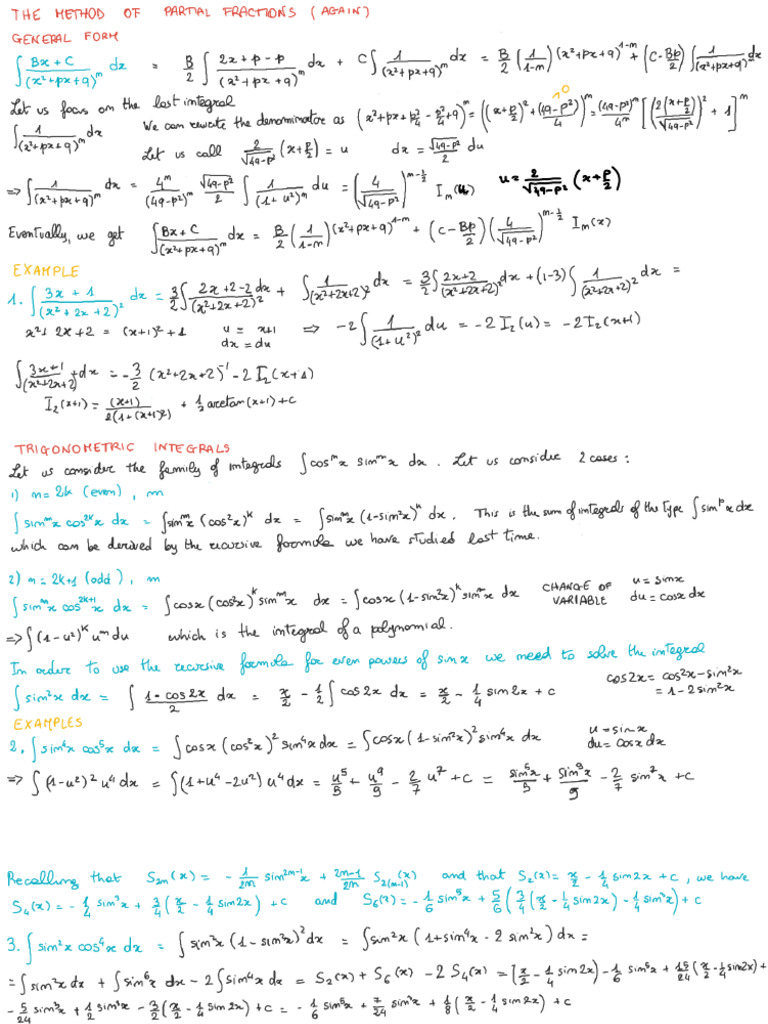 THE METHOD OF PARTIAL FRACTIONS (AGAIN)
GENERAL FORM
∫ (Bx+C)/(x²+px+q)^m dx = B/2 ∫ (2x+p-p)/(x²+px+q)^m dx + C∫ 1/(x²+px+q)^m dx = B/2 (1/(1-m)) (x²+px+q)^(1-m) + (C-Bp/2) ∫ 1/(x²+px+q)^m dx
Let us focus on the last integral >0
∫ 1/(x²+px+q)^m dx We can rewrite the denominator as (x²+px+p²/4-p²/4+q)^m = ((x+p/2)²+(4q-p²)/4)^m = (4q-p²)^m/4^m [(2(x+p/2)/√(4q-p²))² + 1]^m
Let us call 2/√(4q-p²) (x+p/2) = u dx = √(4q-p²)/2 du
⇒ ∫ 1/(x²+px+q)^m dx = 4^m/(4q-p²)^m √(4q-p²)/2 ∫ 1/(1+u²)^m du = (4/√(4q-p²))^(m-1/2) I_m(u) u = 2/√(4q-p²) (x+p/2)
Eventually, we get ∫ (Bx+C)/(x²+px+q)^m dx = B/2 (1/(1-m)) (x²+px+q)^(1-m) + (C-Bp/2) (4/√(4q-p²))^(m-1/2) I_m(x)
EXAMPLE
1. ∫ (3x+1)/(x²+2x+2)² dx = 3/2 ∫ (2x+2-2)/(x²+2x+2)² dx + ∫ 1/(x²+2x+2)² dx = 3/2 ∫ (2x+2)/(x²+2x+2)² dx + (1-3) ∫ 1/(x²+2x+2)² dx =
x²+2x+2 = (x+1)²+1 u = x+1 ⇒ -2∫ 1/(1+u²)² du = -2 I₂(u) = -2I₂(x+1)
dx = du
∫ (3x+1)/(x²+2x+2)² dx = -3/2 (x²+2x+2)⁻¹ - 2 I₂(x+1)
I₂(x+1) = (x+1)/(2(1+(x+1)²)) + 1/2 arctan(x+1) + C
TRIGONOMETRIC INTEGRALS
Let us consider the family of integrals ∫cosⁿx sinᵐx dx. Let us consider 2 cases:
1) n=2k (even), m
∫sinᵐx cos²ᵏx dx = ∫sinᵐx (cos²x)ᵏ dx = ∫sinᵐx (1-sin²x)ᵏ dx. This is the sum of integrals of the type ∫sinᵖx dx
which can be derived by the recursive formula we have studied last time.
2) n=2k+1 (odd), m
∫sinᵐx cos²ᵏ⁺¹x dx = ∫cosx (cos²x)ᵏ sinᵐx dx = ∫cosx (1-sin²x)ᵏ sinᵐx dx CHANGE OF VARIABLE u = sinx du = cosx dx
⇒ ∫(1-u²)ᵏ uᵐ du which is the integral of a polynomial.
In order to use the recursive formula for even powers of sinx we need to solve the integral
∫sin²x dx = ∫ (1-cos2x)/2 dx = x/2 - 1/2 ∫cos2x dx = x/2 - 1/4 sin2x + c cos2x = cos²x-sin²x
= 1-2sin²x
EXAMPLES
2. ∫sin⁴x cos⁵x dx = ∫cosx (cos²x)² sin⁴x dx = ∫cosx (1-sin²x)² sin⁴x dx u = sinx
du = cosx dx
⇒ ∫(1-u²)² u⁴ dx = ∫(1+u⁴-2u²) u⁴ dx = u⁵/5 + u⁹/9 - 2/7 u⁷ + c = sin⁵x/5 + sin⁹x/9 - 2/7 sin⁷x + c
Recalling that S₂ₙ(x) = -1/2n sin²ⁿ⁻¹x + (2n-1)/2n S₂₍ₙ₋₁₎(x) and that S₂(x) = x/2 - 1/4 sin2x + c, we have
S₄(x) = -1/4 sin³x + 3/4 (x/2 - 1/4 sin2x) + c and S₆(x) = -1/6 sin⁵x + 5/6 (3/4 (x/2 - 1/4 sin2x) - 1/4 sin³x) + c
3. ∫sin²x cos⁴x dx = ∫sin²x (1-sin²x)² dx = ∫sin²x (1+sin⁴x-2sin²x) dx =
= ∫sin²x dx + ∫sin⁶x dx - 2∫sin⁴x dx = S₂(x) + S₆(x) - 2S₄(x) = [x/2 - 1/4 sin2x) - 1/6 sin⁵x + 15/24 (x/2 - 1/4 sin2x) +
- 5/24 sin³x + 1/2 sin³x - 3/2 (x/2 - 1/4 sin2x) + c = -1/6 sin⁵x + 7/24 sin³x + 1/8 (x/2 - 1/4 sin2x) + c